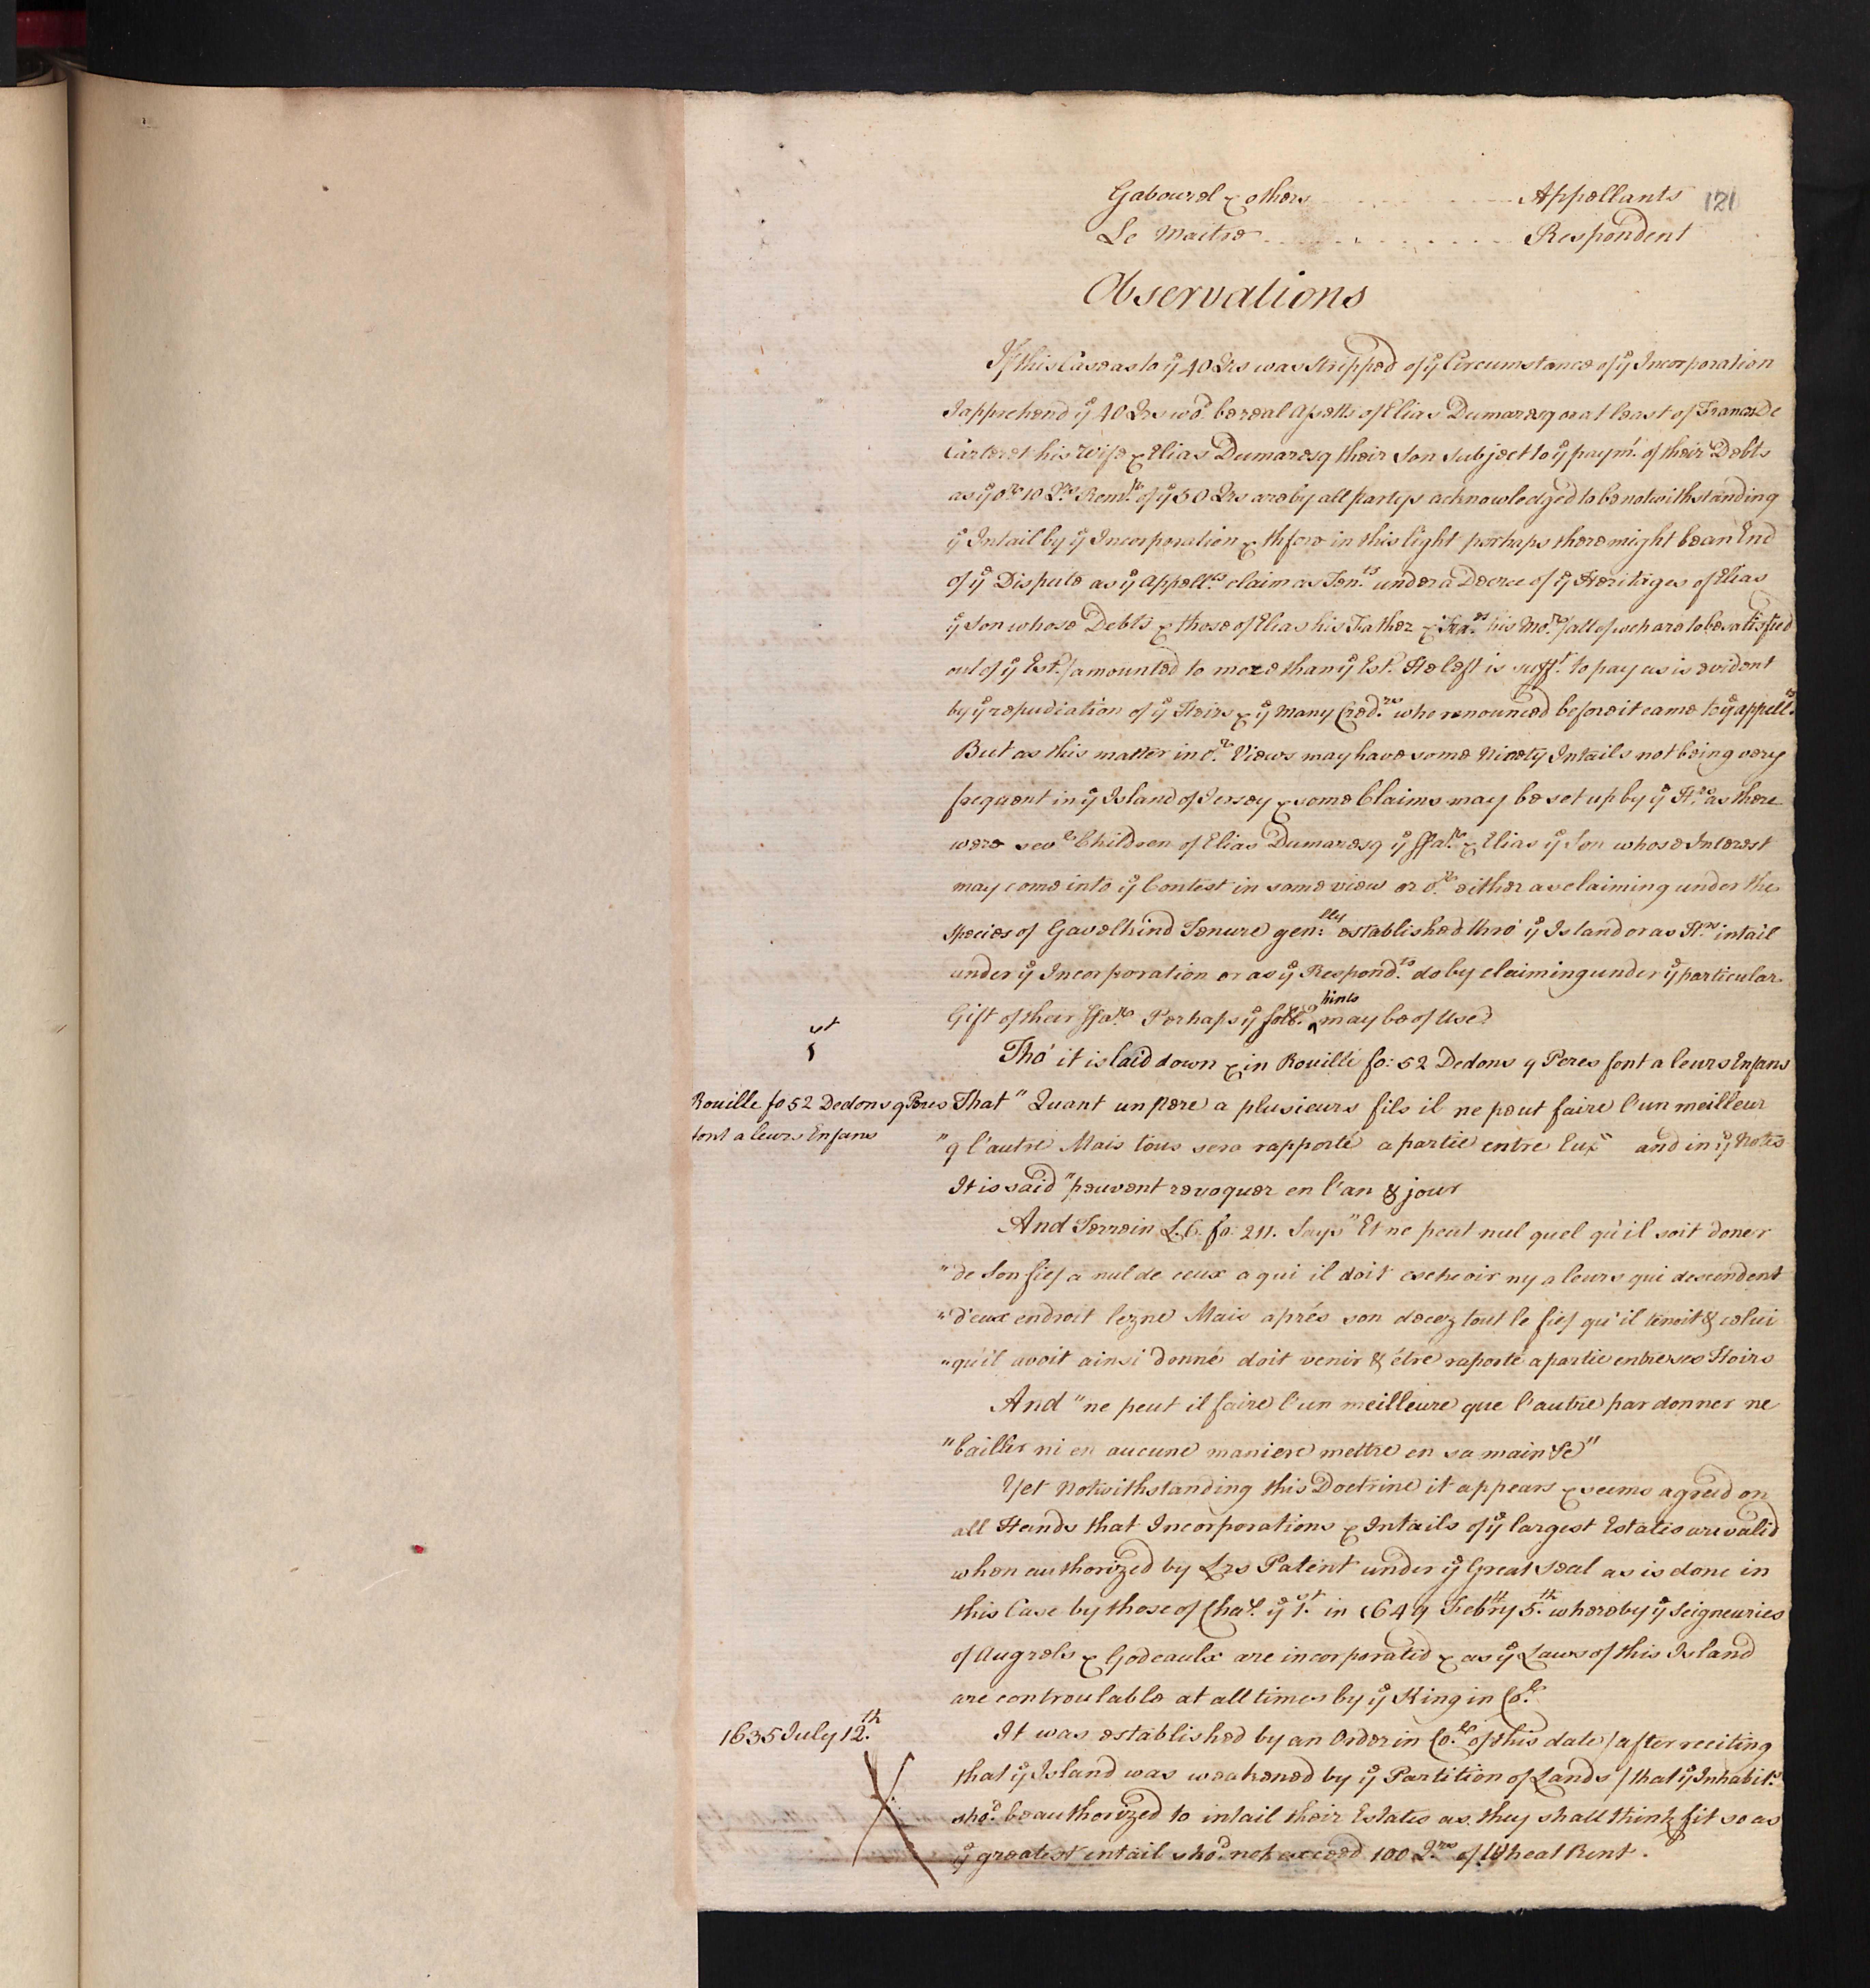 Gabourel & others . . . . . . Appellants 121
Le Maitre . . . . . . Respondent
Observations
If this Case as to ye 40 Qrs was Stripped of ye Circumstance of ye Incorporation
I apprehend ye 40 Qrs wod. be real Assetts of Elias Dumaresq or at least of Frances De
Carteret his Wife & Elias Dumaresq their Son Subject to ye paymt. of their Debts
as ye or. 10 Qrs. Remr. of ye 50 Qrs are by all partys acknowledged to be notwithstanding
ye Intail by ye Incorporation & thfore in this light perhaps there might be an End
of ye Dispute as ye Appellts. claim as Tents. under a Decree of ye Heritages of Elias
ye Son whose Debts & those of Elias his Father & Fras. his Mor. /all of wch are to be satisfied
out of ye Est./ amounted to more than ye Est. He left is sufft. to pay as is evident
by ye repudiation of ye Heirs & ye Many Credrs. who renounced before it came to ye appellts.
But as this matter in or. Views may have some Nicety Intails not being very
frequent in ye Island of Jersey & some Claims may be set up by ye Hrs. as there
were sevl Children of Elias Dumaresq ye ffar. & Elias ye Son whose Interest
may come into ye Contest in some view or or. either as claiming under the
Species of Gavelkind Tenure gen:lly established thro' ye Island or as Hrs. intail
under ye Incorporation or as ye Respondts. do by claiming under ye particular
Gift of their ffar. Perhaps ye follg. hints may be of Use
1st
Tho' it is laid down & in Rouillé fo: 52 Dedons q Peres font a leurs Enfans
Rouille fo 52 Dedons q Peres
font a leurs Enfans
That "Quant un pere a plusieurs fils il ne peut faire l'un meilleur
"q l'autre Mais tous sera rapporté a partie entre Eux" and in ye Notes
It is said "peuvent revoquer en l'an & jour
And Terrein L. 6. fo: 211. Says "Et ne peut nul quel qu'il soit doner
"de Son fief a nul de ceux a qui il doit escheoir ny a leurs qui descendent
"d'eux endroit lezne Mais aprés son decez tout le fief qu'il tenoit & celui
"qu'il avoit ainsi donné doit venir & étre raporté a partie entre ses Hoirs
And "ne peut il faire l'un meilleure que l'autre par donner ne
"bailler ni en aucune maniere mettre en sa main &c"
Yet Notwithstanding this Doctrine it appears & seems agreed on
all Hands that Incorporations & Intails of ye largest Estates are valid
when authorized by Lrs Patent under ye Great Seal as is done in
this Case by those of Chas. ye 1st. in 1649 Febry 5th. whereby ye Seigneuries
of Augrels & Godeaulx are incorporated & as ye Laws of this Island
are controulable at all times by ye King in Col.
1635 July 12th.
It was established by an Order in Col. of this date /after reciting
that ye Island was weakened by ye Partition of Lands / that ye Inhabits.
shod. be authorized to intail their Estates as they shall think fit so as
ye greatest intail shod. not exceed 100 Qrs. of Wheat Rent.